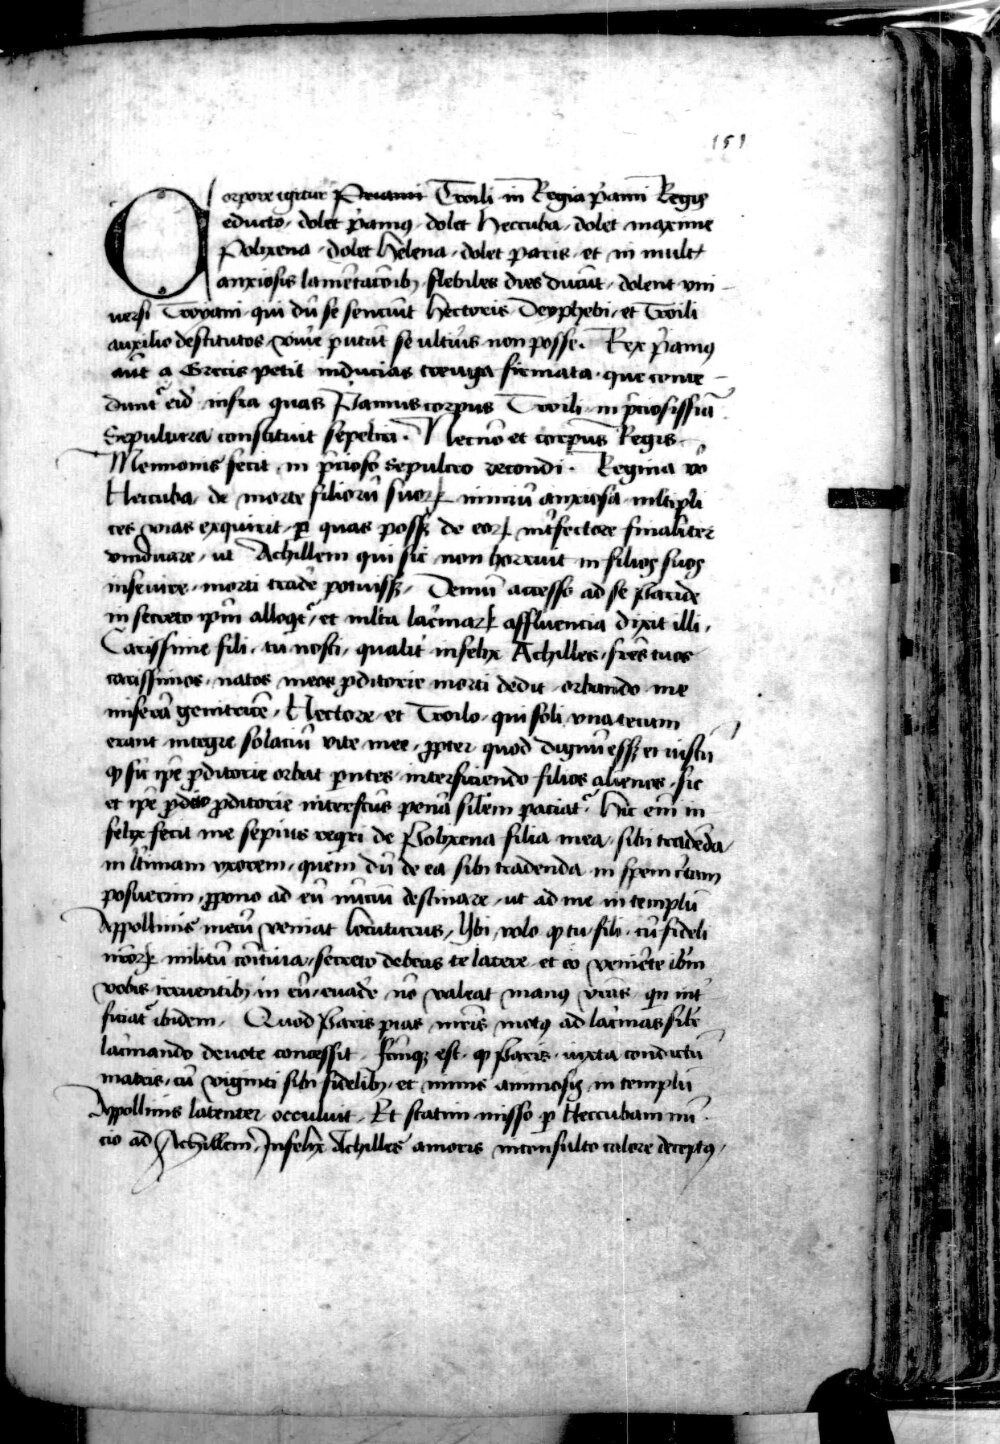 151
Corpore igitur Priami Troili in Regia p̄ami Regis
educto, dolet p̄amus, dolet Heccuba, dolet maxime
Polixena, dolet Helena, dolet paris, et in mult
anxiosis lamētac̄oib; flebiles dies ducūt, dolent vni
uersi Troyani, qui dū se senciūt Hectoris Deyphebi, et Troili
auxilio destitutos, viue putāt se ultius non posse. Rex p̄amus
aūt a Grecis petit inducias treuga firmata, que conce
dunt eid, infra quas Pamus corpus Troili in p̄ciosissīa
Sepultura constituit sepeliri. Necnō et corpus Regis
Mennonis fecit in p̄cioso sepulcro recondi. Regina vō
Heccuba, de morte filiorū suoꝝ nimiū anxiosa, mltipli
ces vias exquirit, ꝑ quas poss; de eoꝝ int̄fectore finaliter
vindicare, ut Achillem qui sic non horruit in filios suos
inseuire, morti trade potuiss;, Demū accesso ad se paride
in secreto ip̄m alloqt̄, et mlta lacimaꝝ affluencia dixit illi,
Carissime fili, tu nosti, qualit̄ infelix Achilles, fres tuos
carissimos, natos meos ꝓditorie morti dedit, orbando me
miserā genitricē, Hectore, et Troilo, qui soli vna tecum
erant integre solaciū vite mee, ꝓpter quod dignū ess; et iustū
ꝙ sic ip̄e ꝓditorie orbat p̄ntes, interficiendo filios alienos, sic
et ip̄e ꝓditorie interfcūs penā silēm paciat. Hic em̄ in
felix fecit me sepius reqri de Polixena filia mea, sibi tradēda,
in ltimam vxorem, quem dū de ea sibi tradenda in spem
posuerim, ꝓpono ad eū nūciū destinare, ut ad me in templū
Appollinis mecū veniat locuturus, Ubi, volo ꝙ tu, fili, cū fideli
nr̄oꝝ militū comitiua, secreto debeas te latere, et eo venīete ibm̄
vobis irruentib; in eū, euade nō valeat manus vras, qn int̄
ficiat ibidem, Quod Paris pias mr̄is motus ad lacimas silr̄
lacimando deuote concessit, Fcūq; est, ꝙ Paris, iuxta condictū
matris, cū viginti sibi fidelib;, et nimis animosis in templū
Appollinis latenter occuluit, Et statim misso ꝑ Heccubam nū
cio ad Achillem, Infelix Achilles amoris inconsulto calore deceptus,